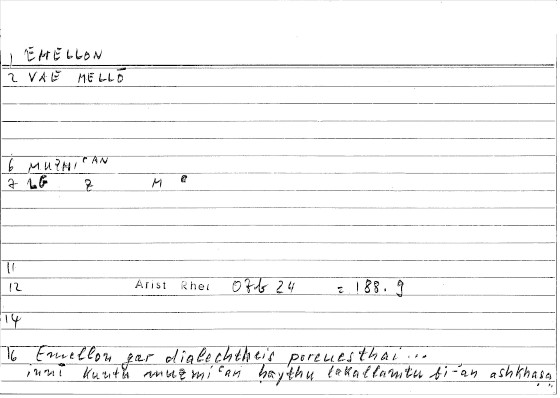 1 EMELLON
2 VAE MELLŌ
6 MUZMIʿAN
7 LG Z M e
11
12 Arist Rhet 07b 24 = 188.9
14
16 Emellon gar dialechtheis poreuesthai...
innī kuntu muzmiʿan ḥaythu takallamtu bi-an ashkhaṣa